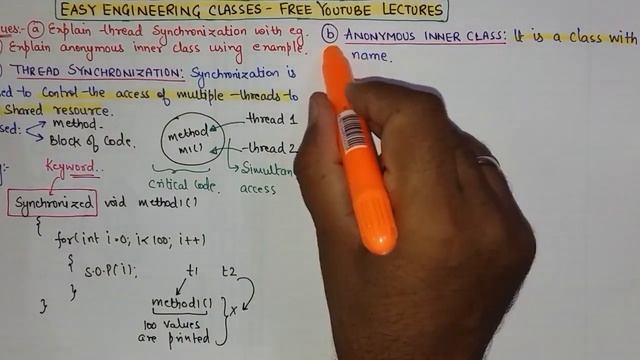 EASY ENGINEERING CLASSES - FREE YOUTUBE LECTURES
ues:- (a) Explain thread Synchronization with eg.
) Explain anonymous inner class using example.
) THREAD SYNCHRONIZATION: Synchronization is
ed to control the access of multiple threads to
Shared resource.
sed:
method.
Block of Code.
method
m1()
thread 1
thread 2
Simultan
access
Critical Code.
y:-
Keyword..
Synchronized void method1()
{
for(int i=0; i<100; i++)
{
S.O.P(i);
}
}
t1 t2
method1()
X
100 values
are printed
(b) ANONYMOUS INNER CLASS: It is a class with
name.